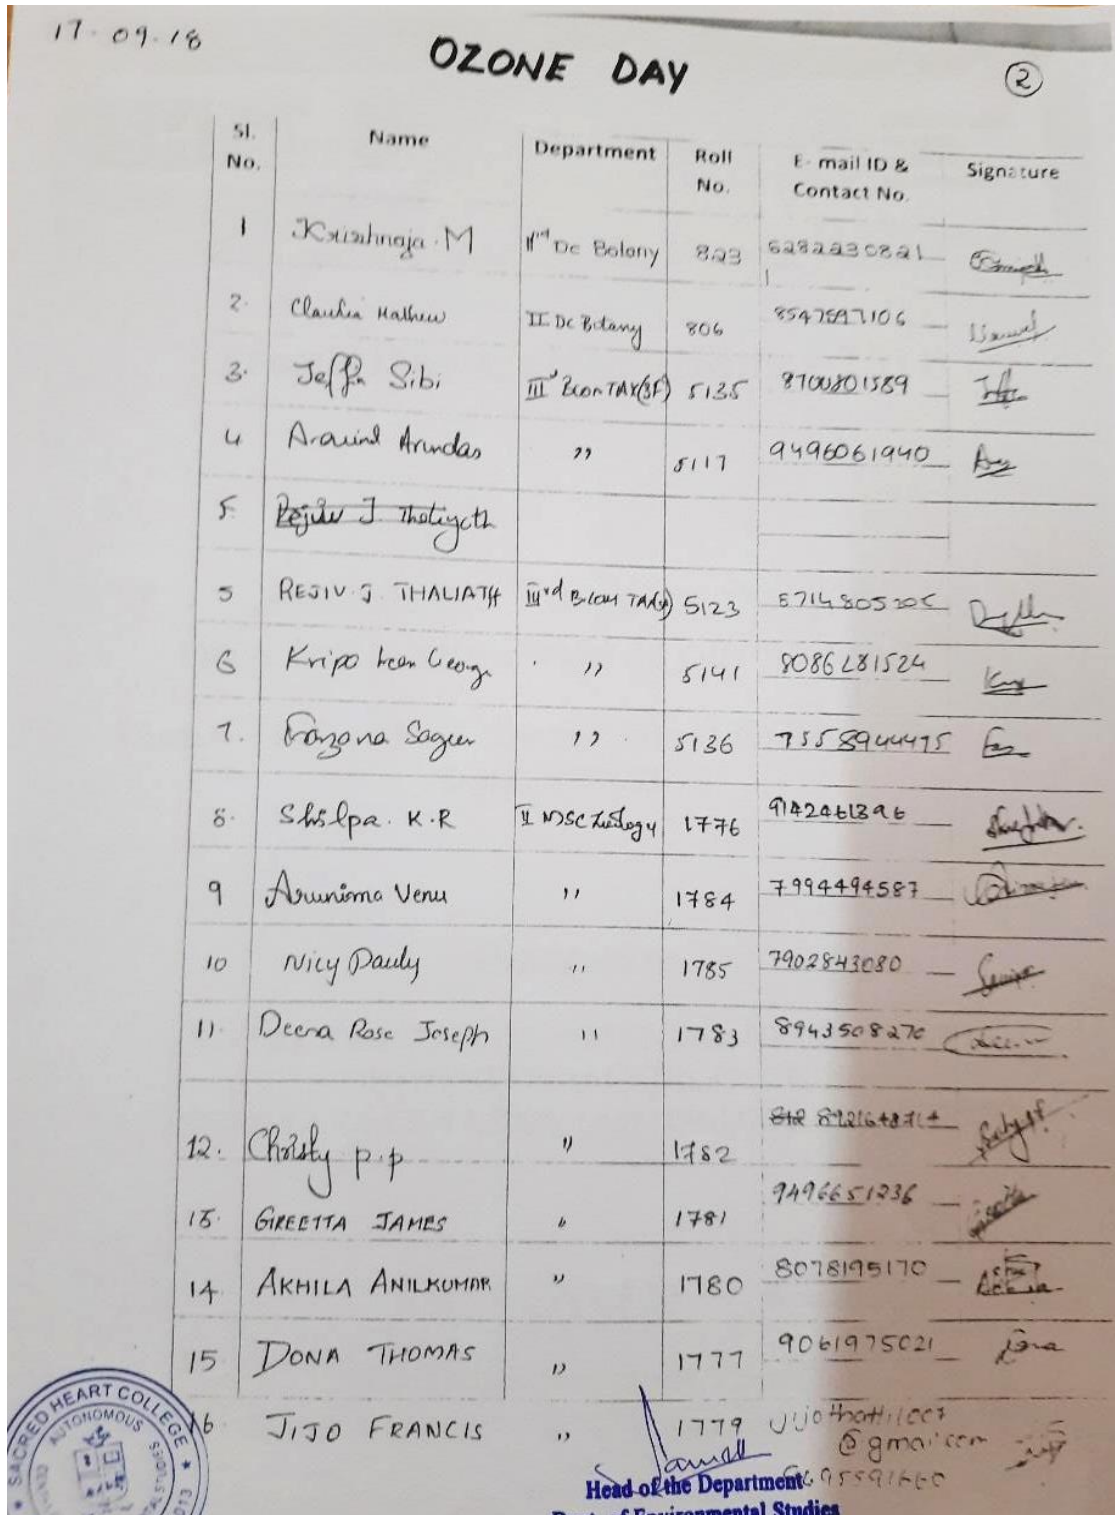 17.09.18
OZONE DAY
2
Sl. No. Name Department Roll No. E-mail ID & Contact No. Signature
1 Krishnaja. M IInd Dc Botany 823 6282230821
2. Claudia Mathew II Dc Botany 806
3. Jeffa Sibi III 5135 8700801589
4 Aravind Arundas " 5117 9496061940
5. Rejiv J. Thaliyath
5 REJIV. J. THALIATH IIIrd B.com TAX 5123
6 Kripa George " 5141 8086281524
7. Farzana " 5136 7558944475
8. Shilpa. K.R II MSC Zoology 1776 9142461396
9 Arunima Venu " 1784 7994494587
10 Nicy Pauly " 1785 7902843080
11. Deena Rose Joseph " 1783 8943508270
12. Christy P.P " 1782
13. GREETTA JAMES " 1781 9496651236
14 AKHILA ANILKUMAR " 1780 8078195170
15 DONA THOMAS " 1777 9061975021 Dona
16 JIJO FRANCIS " 1779
@gmail.com
Head of the Department
Dept. of Environmental Studies
SACRED HEART COLLEGE
AUTONOMOUS